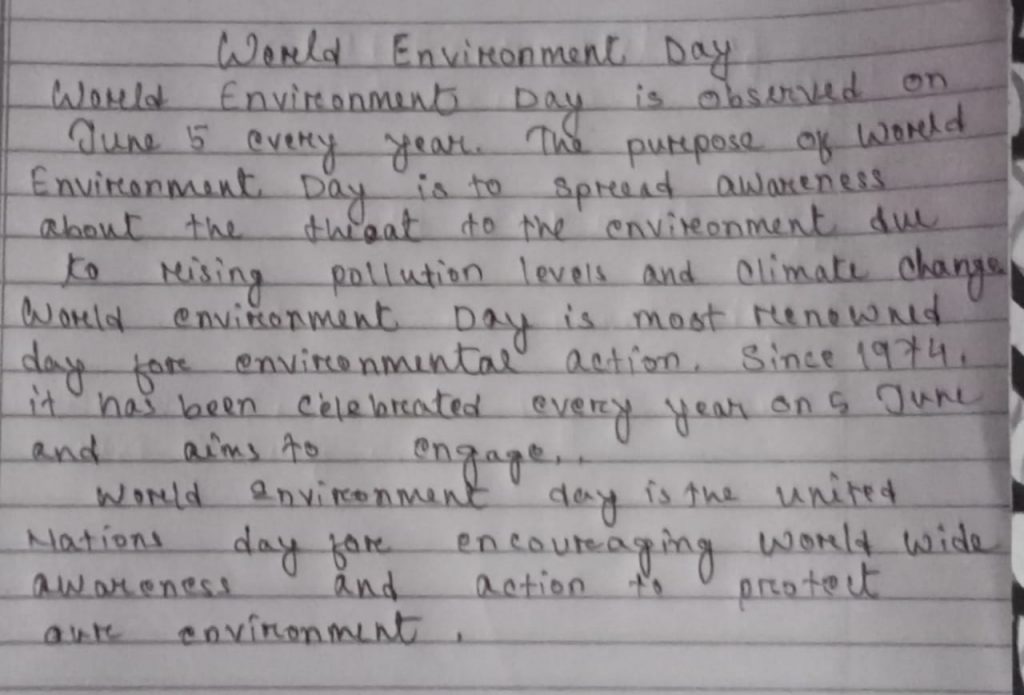 World Environment Day
World Environment Day is observed on
June 5 every year. The purpose of World
Environment Day is to spread awareness
about the threat to the environment due
to rising pollution levels and climate change
World environment Day is most renowned
day for environmental action. Since 1974.
it has been celebrated every year on 5 June
and aims to engage..
World environment day is the united
Nations day for encouraging world wide
awareness and action to protect
our environment.